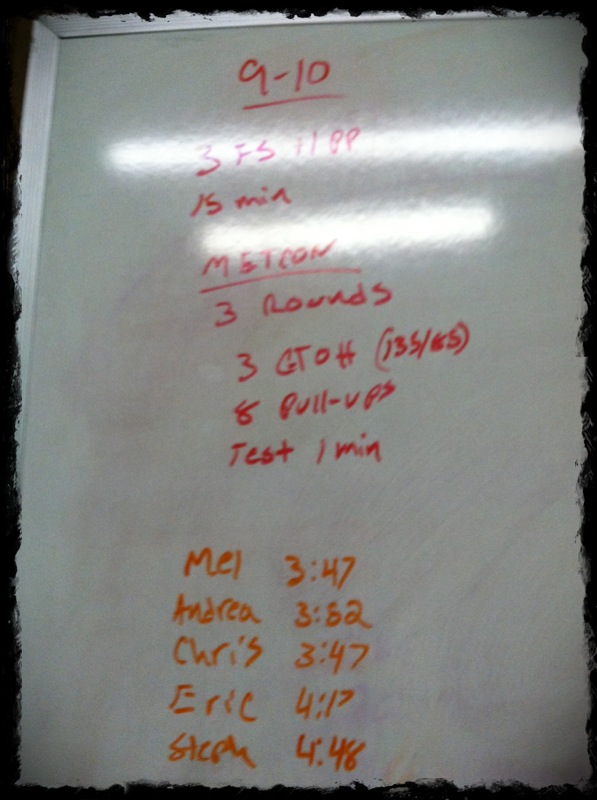 9-10
3 FS 11 PP
15 min
METCON
3 Rounds
3 GTOH (135/85)
8 Pull-ups
Test 1 min
Mel 3:47
Andrea 3:52
Chris 3:47
Eric 4:17
Steph 4:48